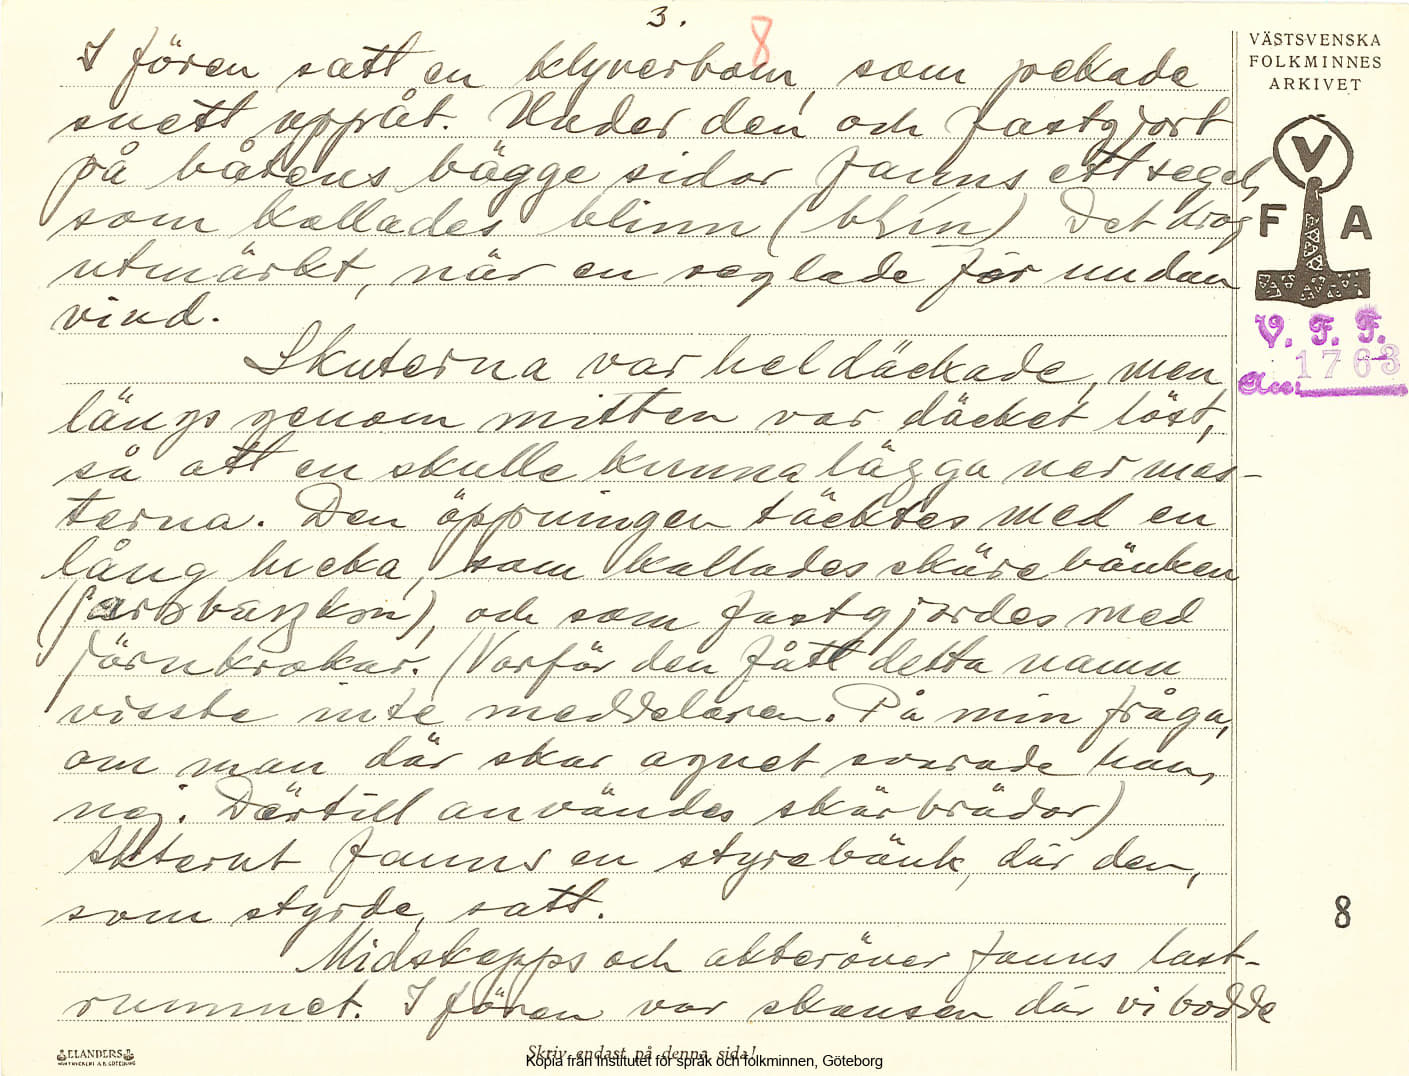 3.
8
I fören satt en klyverbom, som pekade
snett uppåt. Under den och fastgjort
på båtens bägge sidor fanns ett segel,
som kallades blinn (blin) Det drog
utmärkt, när en seglade för undan
vind.
Skuterna var heldäckade, men
längs genom mitten var däcket löst,
så att en skulle kunna lägga ner mas-
terna. Den öppningen täcktes med en
lång lucka, som kallades skärebänken
och som fastgjordes med
järnkrokar. (Varför den fått detta namn
visste inte meddelaren. På min fråga,
om man där skar agnet svarade han,
nej. Därtill användes skärbrädor)
Akterut fanns en styrebänk, där den,
som styrde, satt.
Midskepps och akteröver fanns last-
rummet. I fören var skansen där vi bodde
VÄSTSVENSKA
FOLKMINNES
ARKIVET
V
F A
V. F. F.
1763
8
ELANDERS
Skriv endast på denna sida!
Kopia från Institutet för språk och folkminnen, Göteborg